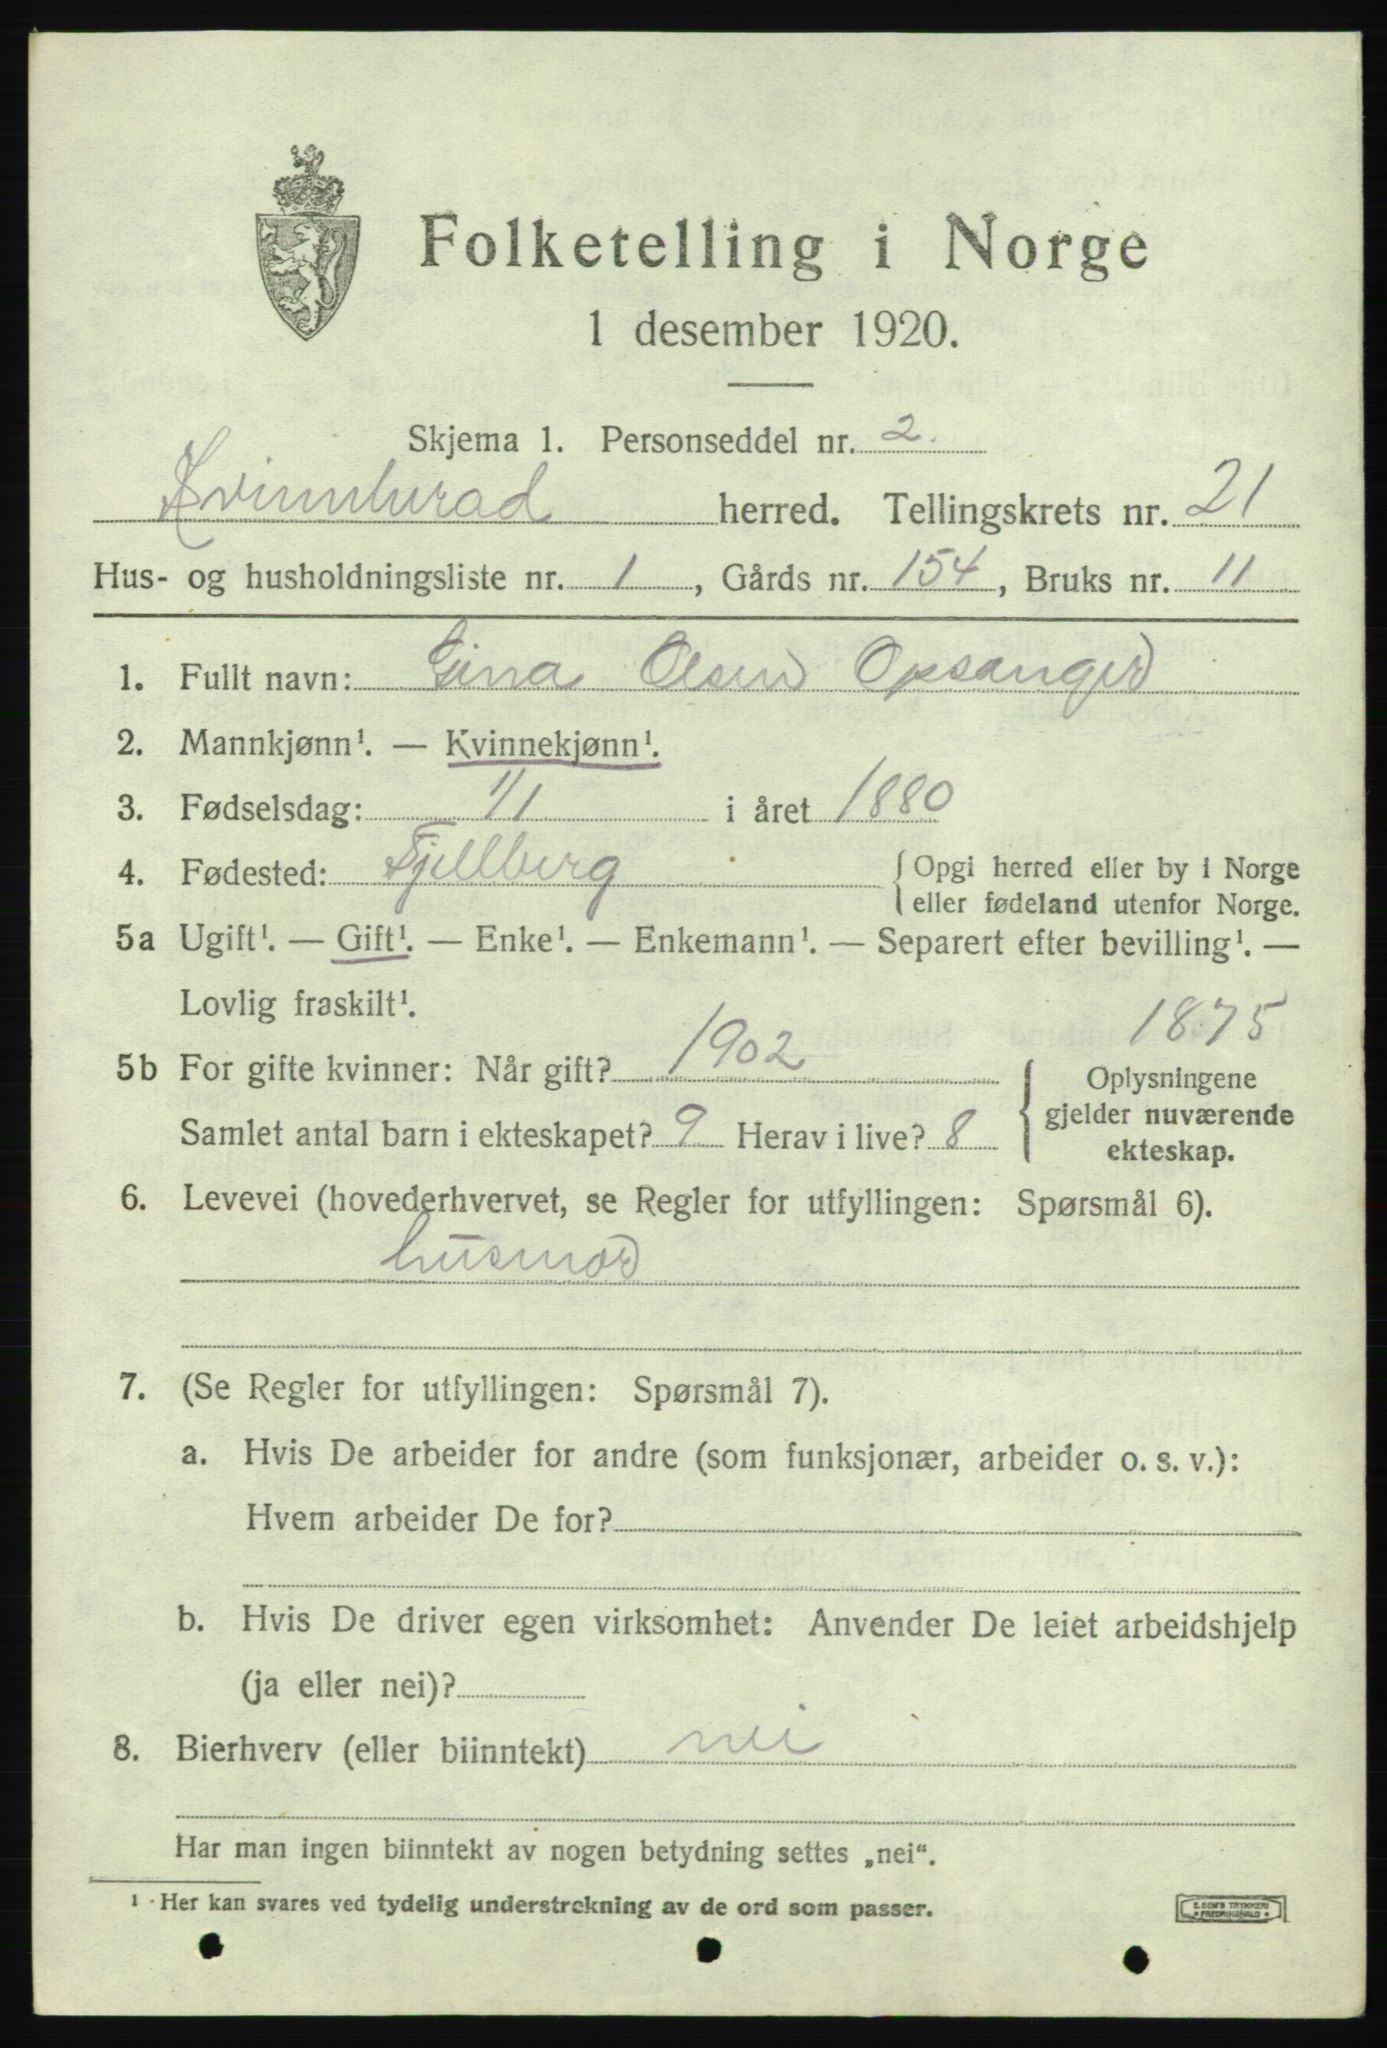 Folketelling i Norge
1 desember 1920.
Skjema 1. Personseddel nr. 2.
Kvinnherad herred. Tellingskrets nr. 21
Hus- og husholdningsliste nr. 1, Gårds nr. 154, Bruks nr. 11
1. Fullt navn: Gina Olsen Opsanger
2. Mannkjønn¹. — Kvinnekjønn¹.
3. Fødselsdag: 1/1 i året 1880
4. Fødested: Fjellberg { Opgi herred eller by i Norge
eller fødeland utenfor Norge.
5a Ugift¹. — Gift¹. — Enke¹. — Enkemann¹. — Separert efter bevilling¹. —
Lovlig fraskilt¹.
1875
5b For gifte kvinner: Når gift? 1902
Samlet antal barn i ekteskapet? 9 Herav i live? 8
{ Oplysningene
gjelder nuværende
ekteskap.
6. Levevei (hovederhvervet, se Regler for utfyllingen: Spørsmål 6).
husmor
7. (Se Regler for utfyllingen: Spørsmål 7).
a. Hvis De arbeider for andre (som funksjonær, arbeider o. s. v.):
Hvem arbeider De for?
b. Hvis De driver egen virksomhet: Anvender De leiet arbeidshjelp
(ja eller nei)?
8. Bierhverv (eller biinntekt) nei
Har man ingen biinntekt av nogen betydning settes „nei“.
¹ Her kan svares ved tydelig understrekning av de ord som passer.
E. SEM'S TRYKKERI
FREDRIKSHALD